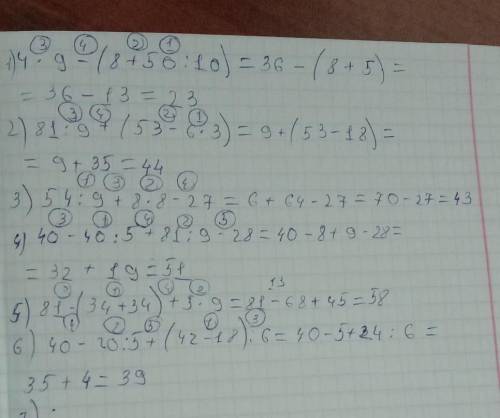 ③ ④ ② ①
1) 4 · 9 - (8 + 50 : 10) = 36 - (8 + 5) =
= 36 - 13 = 23
③ ④ ② ①
2) 81 : 9 + (53 - 6 · 3) = 9 + (53 - 18) =
= 9 + 35 = 44
① ③ ② ④
3) 54 : 9 + 8 · 8 - 27 = 6 + 64 - 27 = 70 - 27 = 43
③ ① ④ ② ⑤
4) 40 - 40 : 5 + 81 : 9 - 28 = 40 - 8 + 9 - 28 =
= 32 + 19 = 51
13
5) 81 - (34 + 34) + 5 · 9 = 81 - 68 + 45 = 58
6) 40 - 20 : 5 + (42 - 18) : 6 = 40 - 5 + 24 : 6 =
35 + 4 = 39
7)